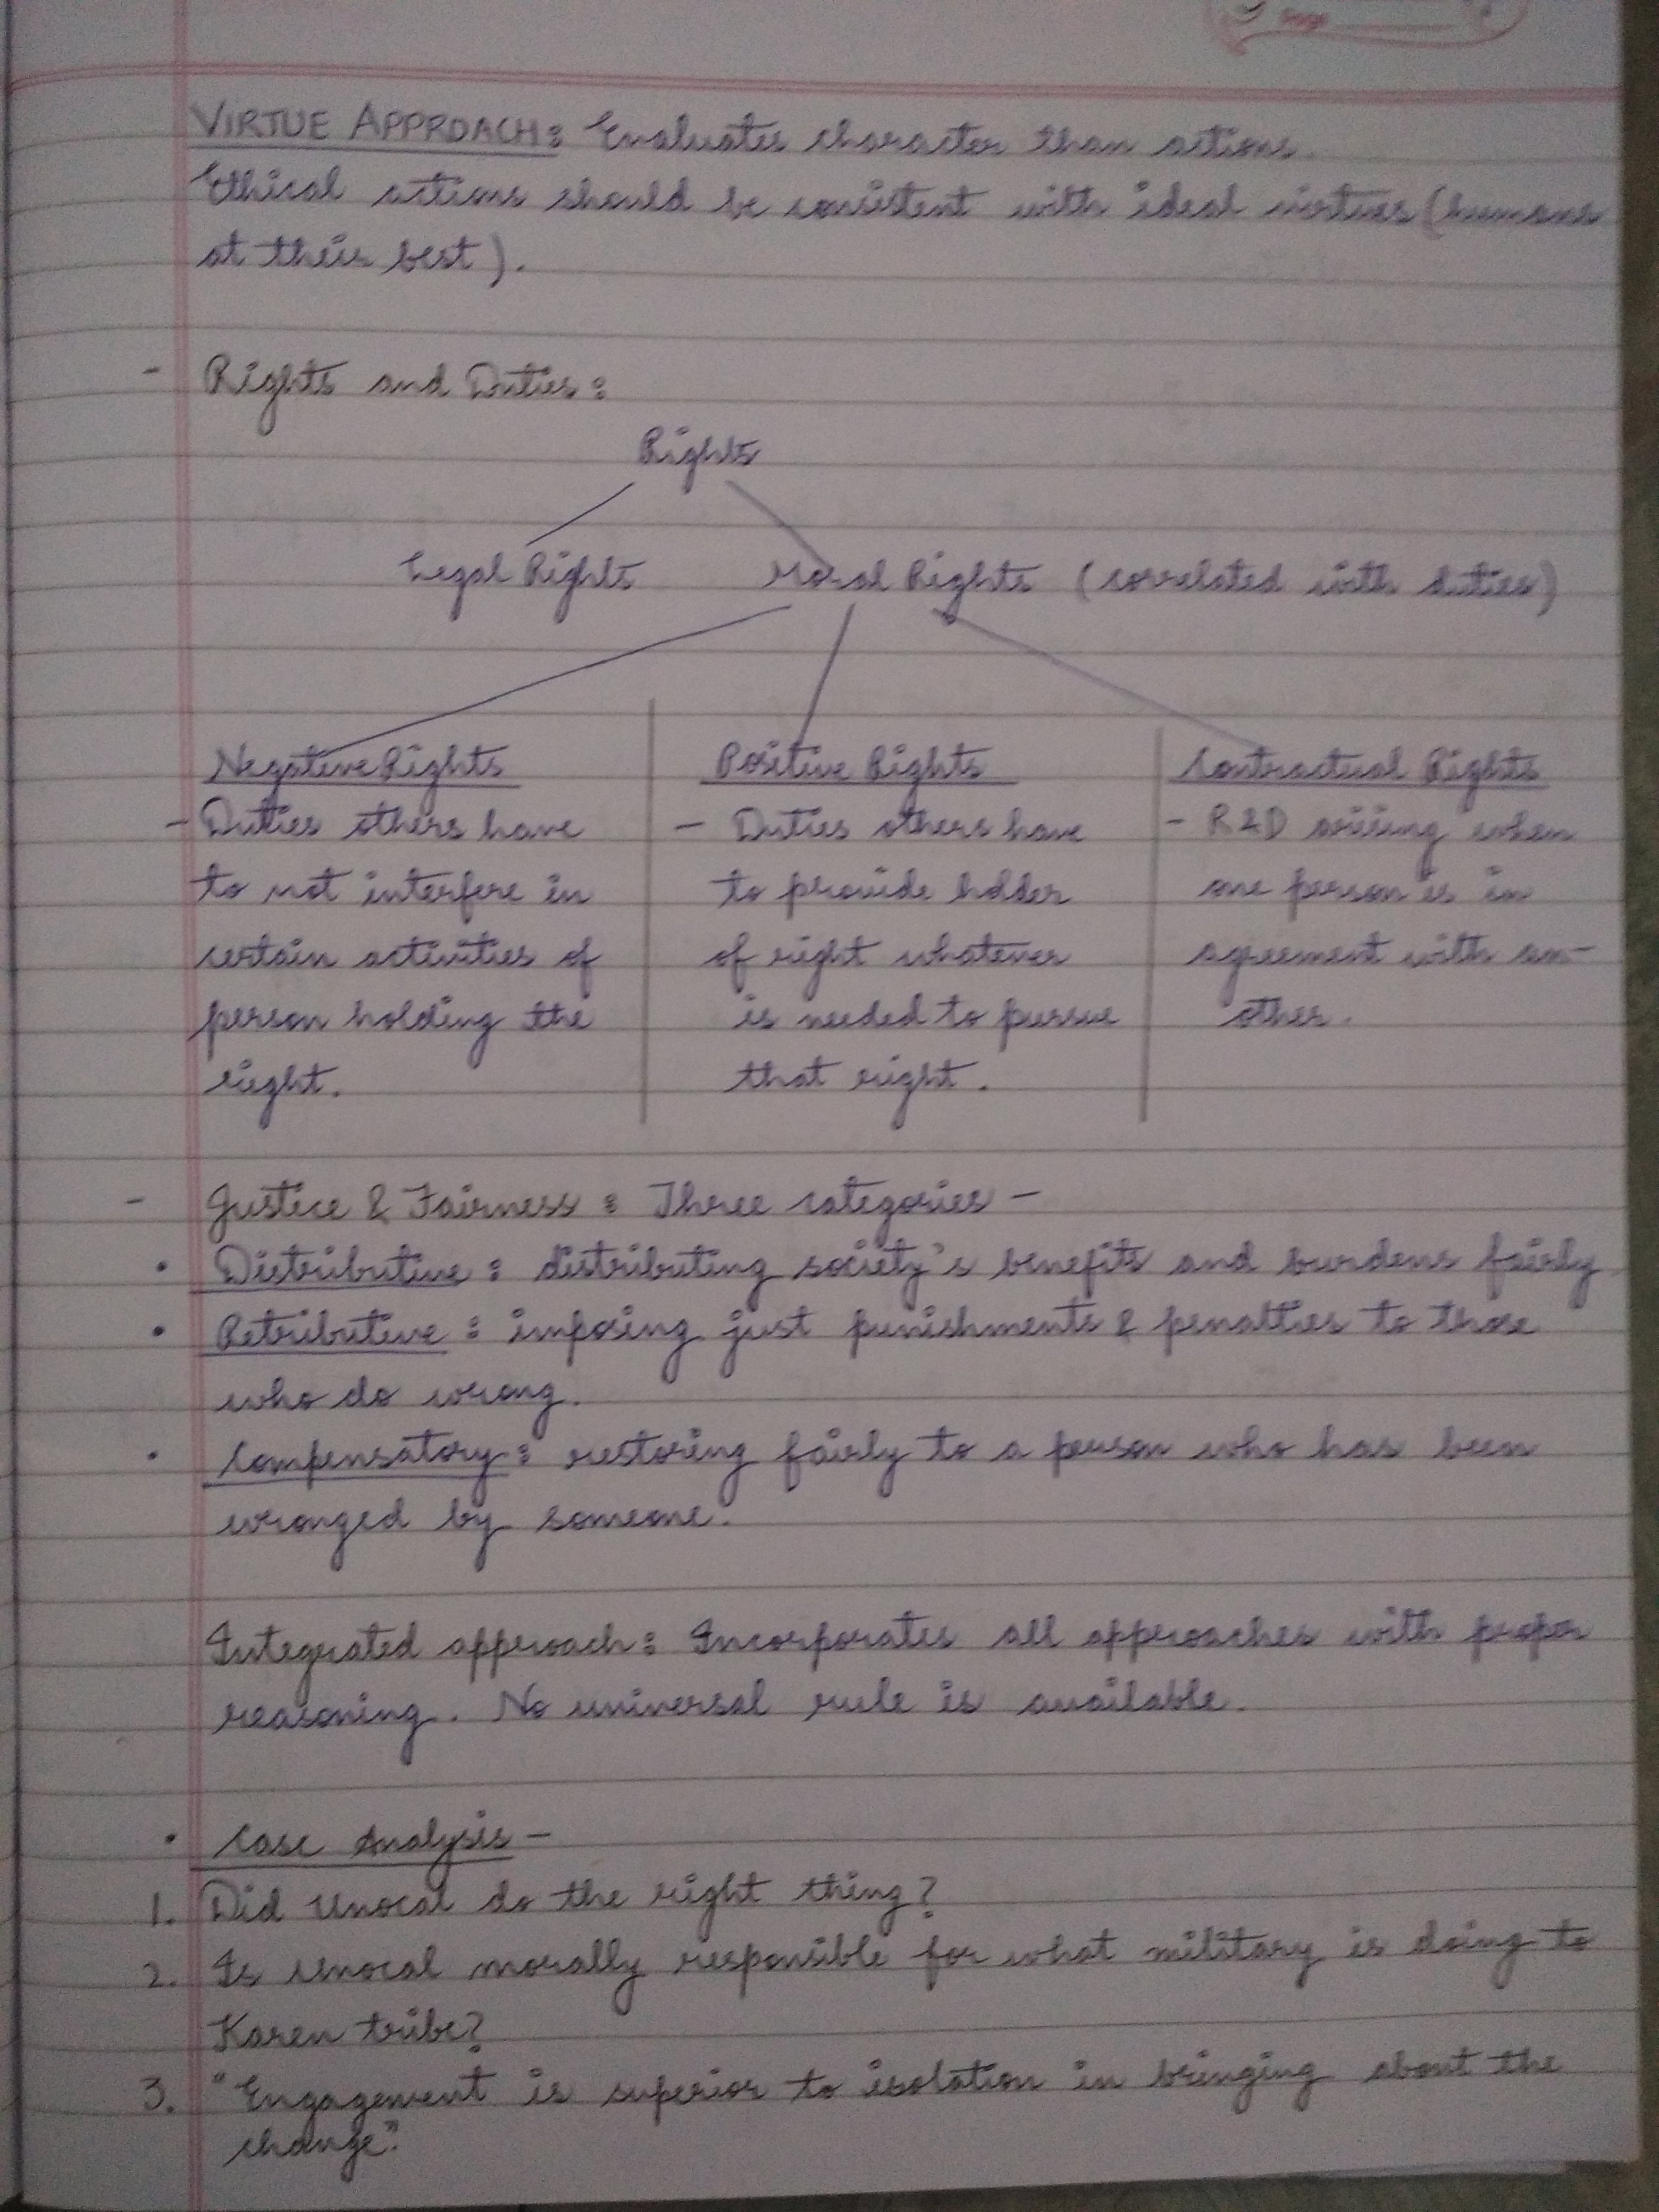 Page
VIRTUE APPROACH: Evaluates character than actions.
Ethical actions should be consistent with ideal virtues (humans
at their best).
- Rights and Duties:
Rights
Legal Rights Moral Rights (correlated with duties)
Negative Rights
- Duties others have
to not interfere in
certain activities of
person holding the
right.
Positive Rights
- Duties others have
to provide holder
of right whatever
is needed to pursue
that right.
Contractual Rights
- R&D arising when
one person is in
agreement with an-
other.
- Justice & Fairness : Three categories -
• Distributive : distributing society's benefits and burdens fairly
• Retributive : imposing just punishments & penalties to those
who do wrong.
• Compensatory : restoring fairly to a person who has been
wronged by someone.
Integrated approach : Incorporates all approaches with proper
reasoning. No universal rule is available.
• Case Analysis -
1. Did Unocal do the right thing?
2. Is Unocal morally responsible for what military is doing to
Karen tribe?
3. "Engagement is superior to isolation in bringing about the
change".